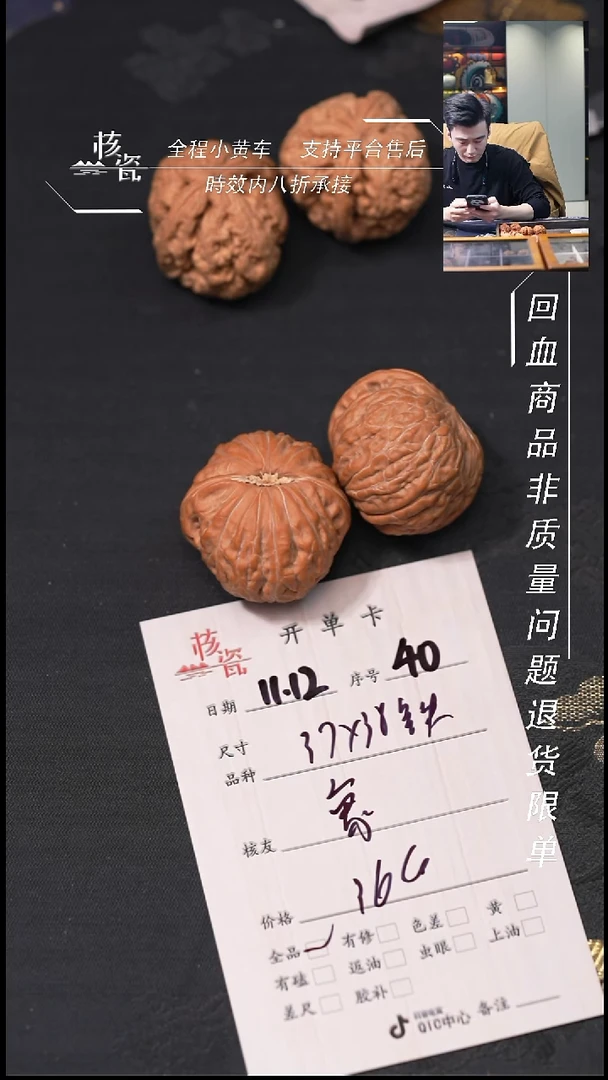 核瓷
全程小黄车 支持平台售后
時效内八折承接
回血商品非质量问题退货限单
核瓷
开单卡
日期 11.12 序号 40
尺寸 37x38
品种
核友
价格
全品 有修 色差 黄
有磕 返油 虫眼 上油
差尺 胶补
QIC中心 备注